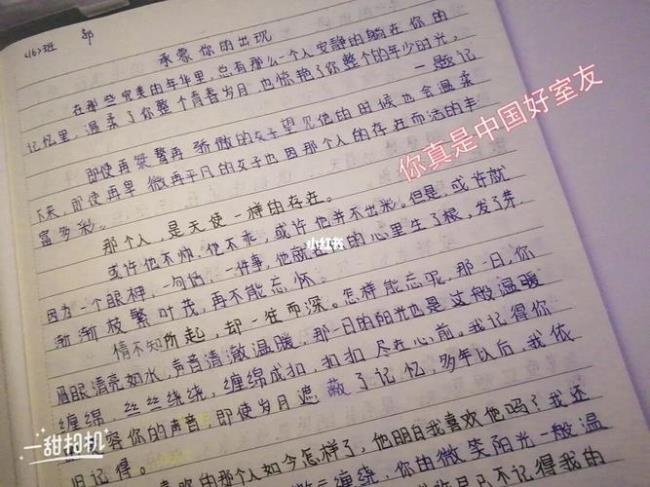 (16)班 郭
承蒙你的出现
在那些完美的年华里，总有那么一个人安静的躺在你的
记忆里，温柔了你整个青春岁月，也惊艳了你整个的年少时光，
一题记
即使再桀骜再骄傲的女子望见他的时候也会温柔
下来，即使再卑微再平凡的女子也因那个人的存在而活的丰
富多彩。
那个人，是天使一样的存在。
或许他不帅，他不乖，或许他并不出彩。但是，或许就
因为一个眼神，一句话，一件事，他就在你的心里生了根，发了芽，
渐渐枝繁叶茂，再不能忘怀。
情不知所起，却一往而深。怎样能忘呢，那一日，你
眉眼清亮如水，声音清澈温暖，那一日的阳光也是这般温暖
缠绵，丝丝绕绕，缠绵成扣，扣扣尽在心前。我记得你
容你的声音，即使岁月遮蔽了记忆，多年以后，我依
旧记得。
喜欢的那个人如今怎样了，他明白我喜欢他吗？我还
缠绕，你的微笑阳光一般温
已不记得我的
你真是中国好室友
小红书
一甜相机